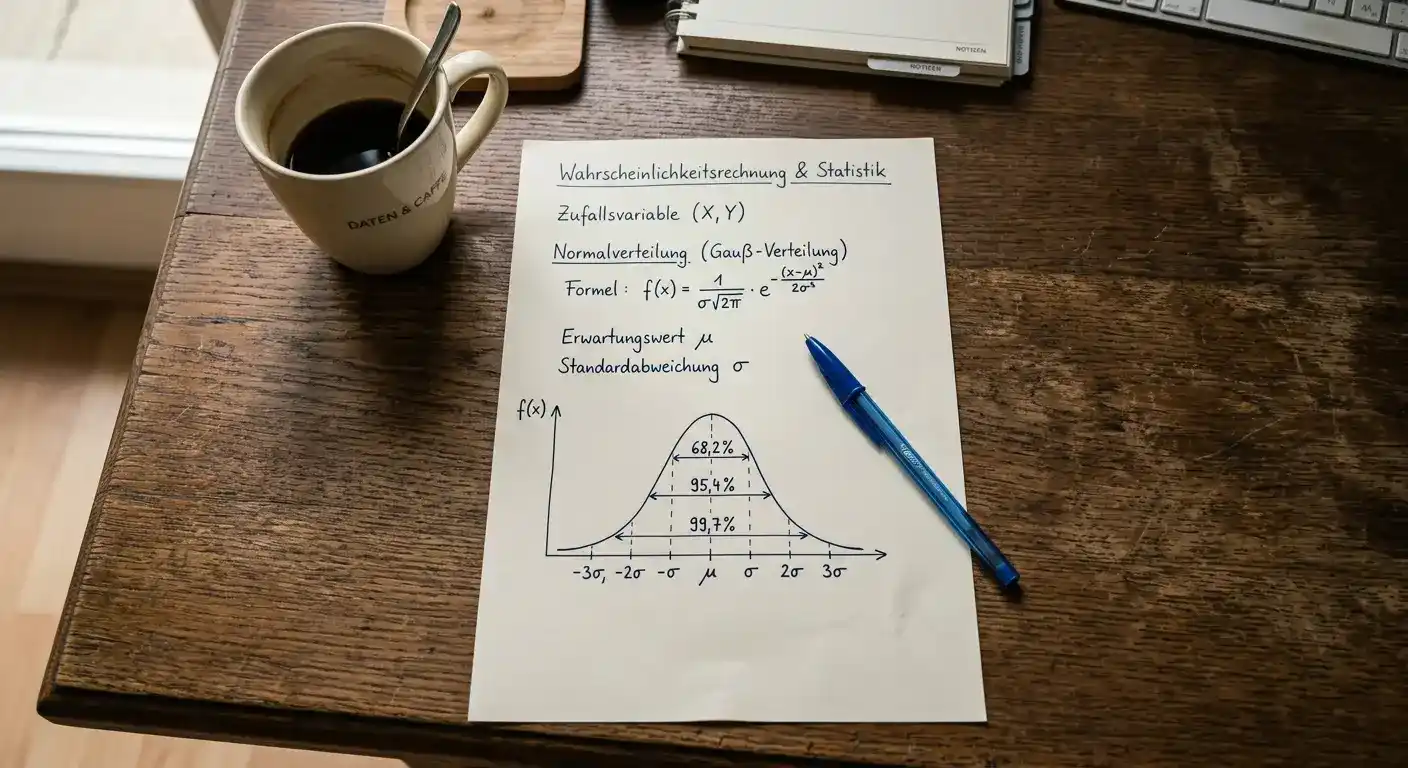 NOTIZEN
NOTIZEN
DATEN & CAFFE
Wahrscheinlichkeitsrechnung & Statistik
Zufallsvariable (X, Y)
Normalverteilung (Gauß-Verteilung)
Formel : f(x) = 1/(σ√2π) · e^(-(x-μ)²/2σ⁵)
Erwartungswert μ
Standardabweichung σ
f(x)
68,2%
95,4%
99,7%
-3σ, -2σ -σ μ σ 2σ 3σ